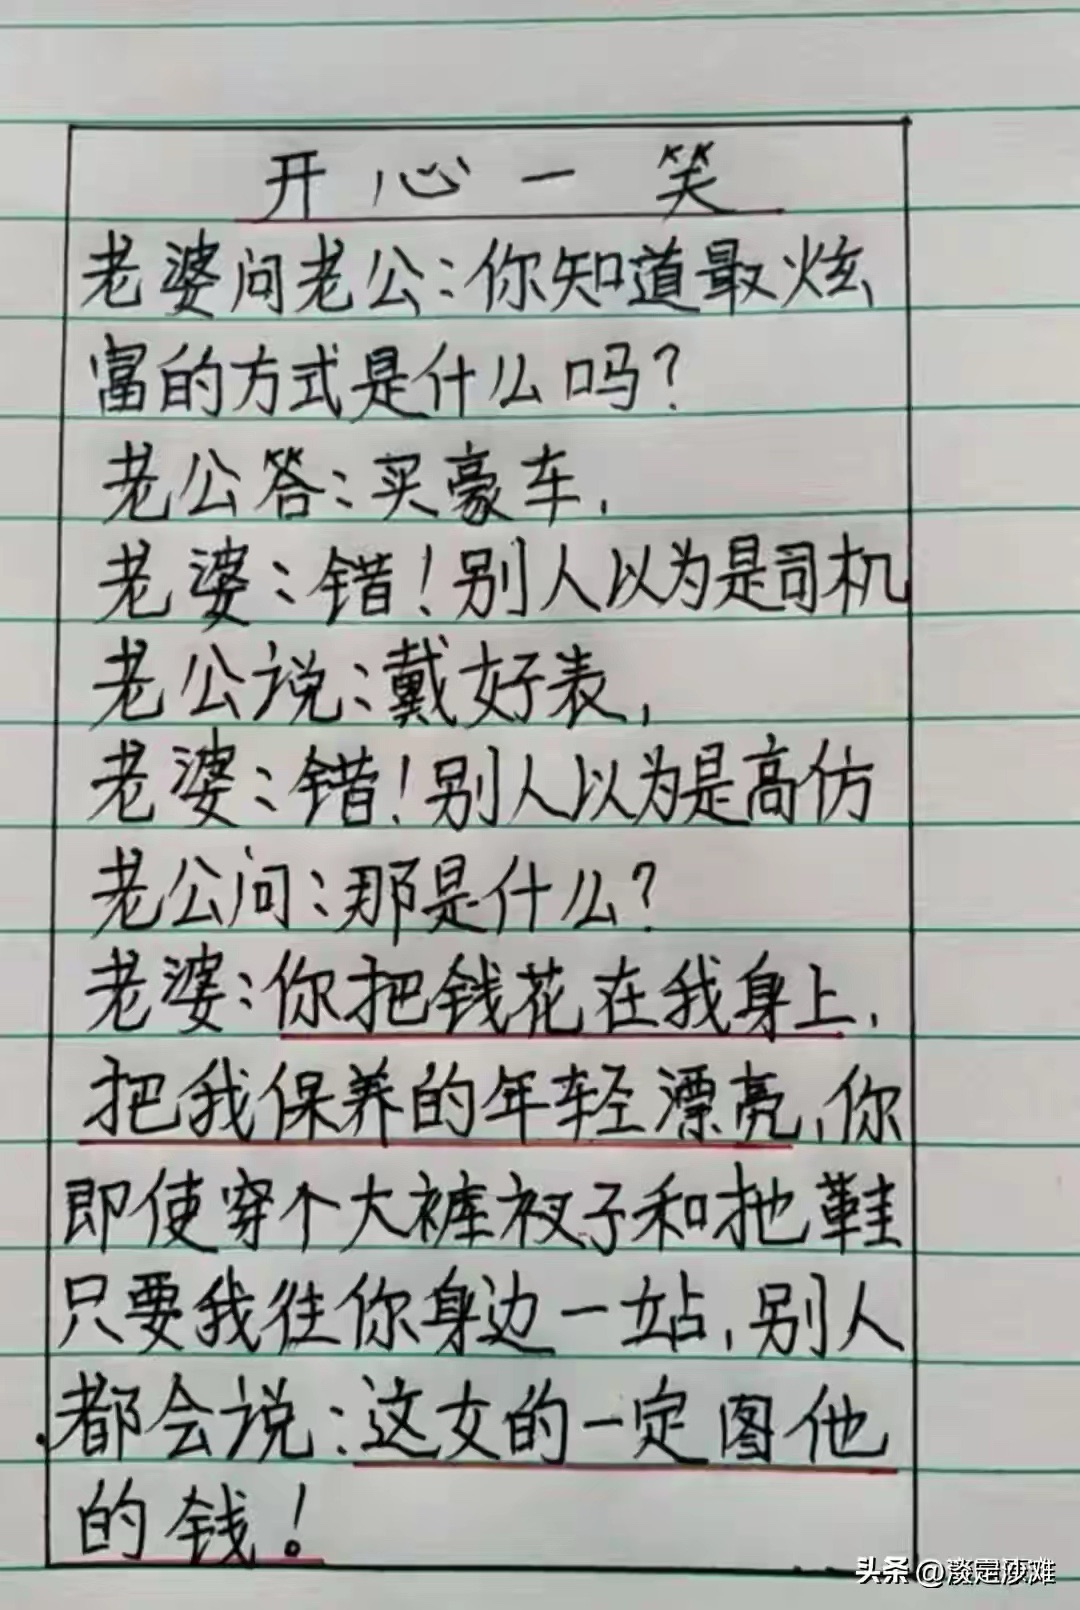 开心一笑
老婆问老公:你知道最炫
富的方式是什么吗?
老公答:买豪车,
老婆:错!别人以为是司机
老公说:戴好表,
老婆:错!别人以为是高仿
老公问:那是什么?
老婆:你把钱花在我身上,
把我保养的年轻漂亮,你
即使穿个大裤衩子和拖鞋
只要我往你身边一站,别人
都会说:这女的一定图他
的钱!
头条 @淡定沙滩